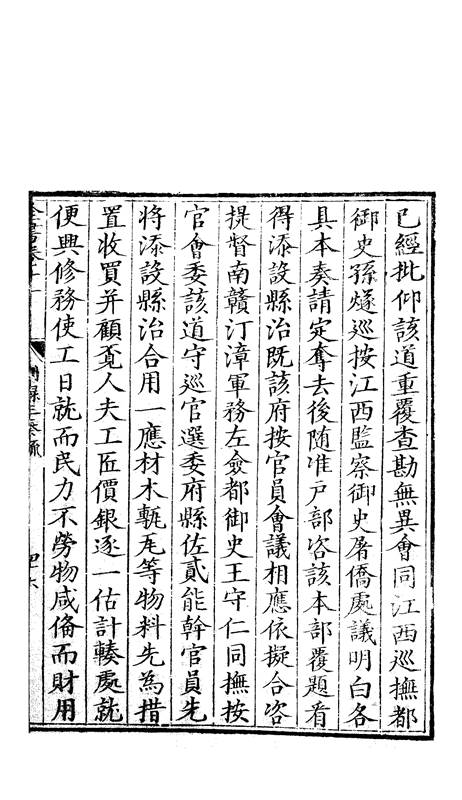 已經批仰該道重覆查勘無異會同江西巡撫都
御史孫燧巡按江西監察御史屠僑處議明白各
具本奏請定奪去後隨准戸部咨該本部覆題看
得添設縣治既該府按官員會議相應依擬合咨
提督南贛汀漳軍務左僉都御史王守仁同撫按
官會委該道守巡官選委府縣佐貳能幹官員先
將添設縣治合用一應材木甎瓦等物料先為措
置收買并顧覔人夫工匠價銀逐一估計輳處就
便興修務使工日就而民力不勞物咸俻而財用